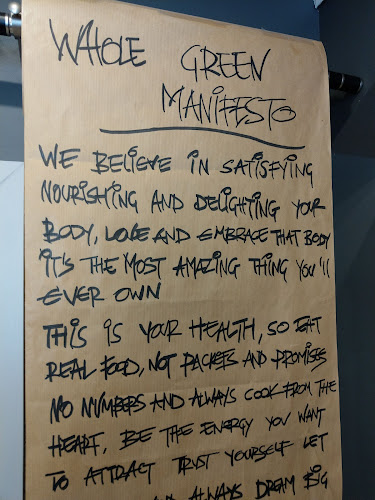 WHOLE GREEN
MANIFESTO
WE BELIEVE IN SATISFYING
NOURISHING AND DELIGHTING YOUR
BODY, LOVE AND EMBRACE THAT BODY
IT'S THE MOST AMAZING THING YOU'll
EVER OWN
THIS IS YOUR HEALTH, SO EAT
REAL FOOD, NOT PACKETS AND PROMISES
NO NUMBERS AND ALWAYS COOK FROM THE
HEART, BE THE ENERGY YOU WANT
TO ATTRACT TRUST YOURSELF LET
ALWAYS DREAM BIG